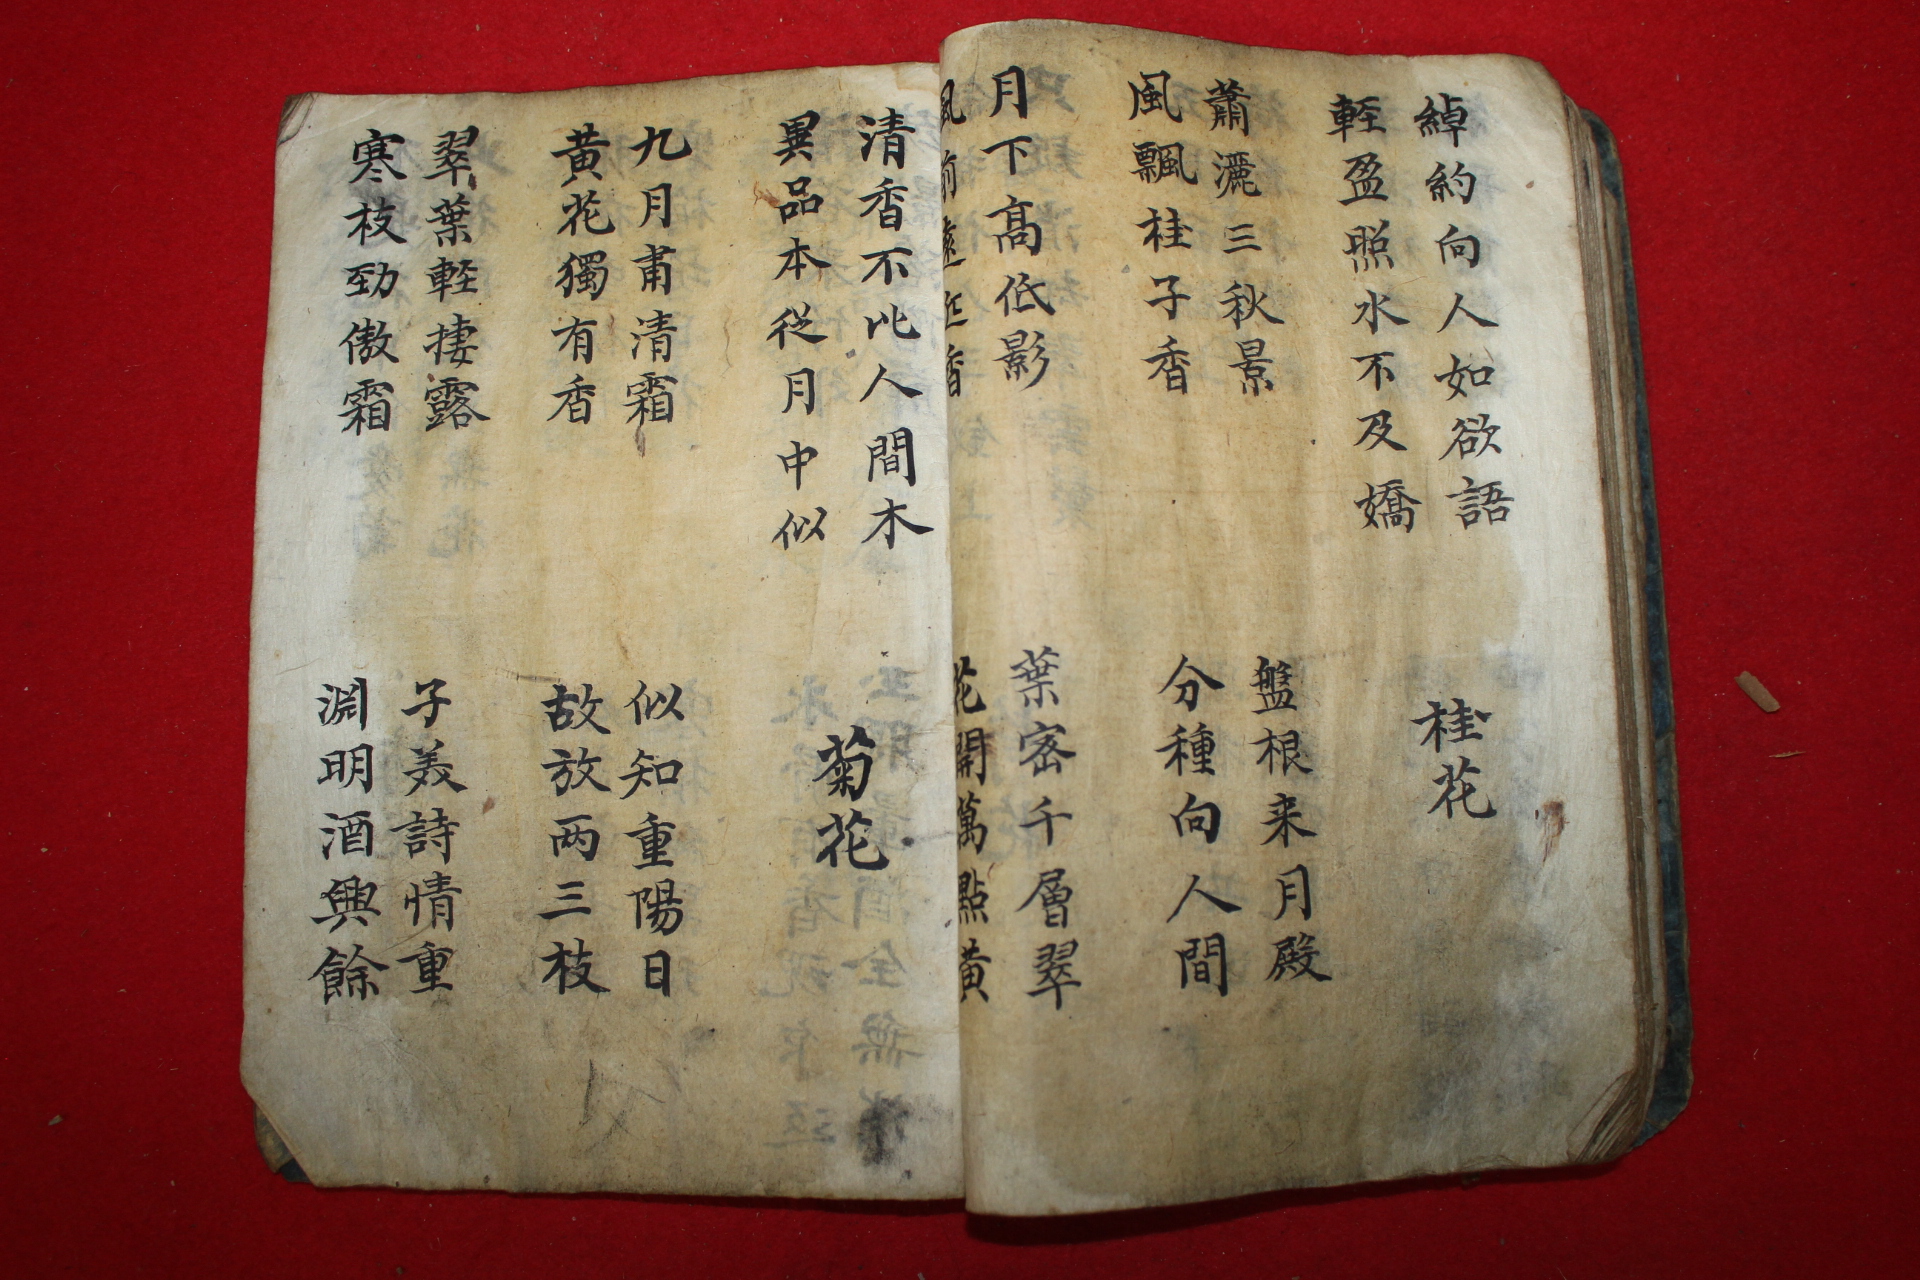 綽約向人如欲語
軽盈照水不及嬌
桂花
蕭灑三秋景
風飄桂子香
盤根来月殿
分種向人間
月下高低影
風前遠近香
葉密千層翠
花開萬點黄
清香不比人間木
異品本從月中似
菊花
九月甫清霜
黄花獨有香
似知重陽日
故放两三枝
翠葉軽捿露
寒枝勁傲霜
子美詩情重
淵明酒興餘